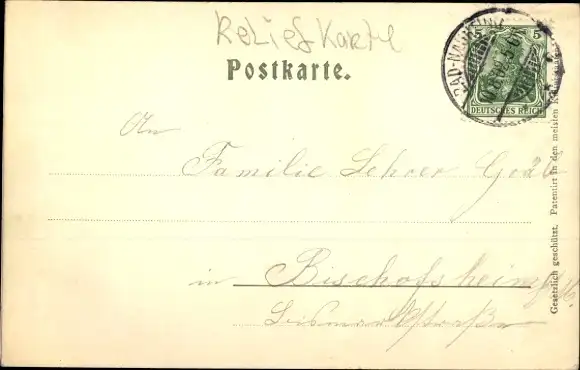 Reliefkarte
Postkarte.
BAD-NAUHEIM
5 5
DEUTSCHES REICH
An
Familie Lehrer Götz
in Bischofsheim
Bismarckstraße
Gesetzlich geschützt. Patentirt in den meisten